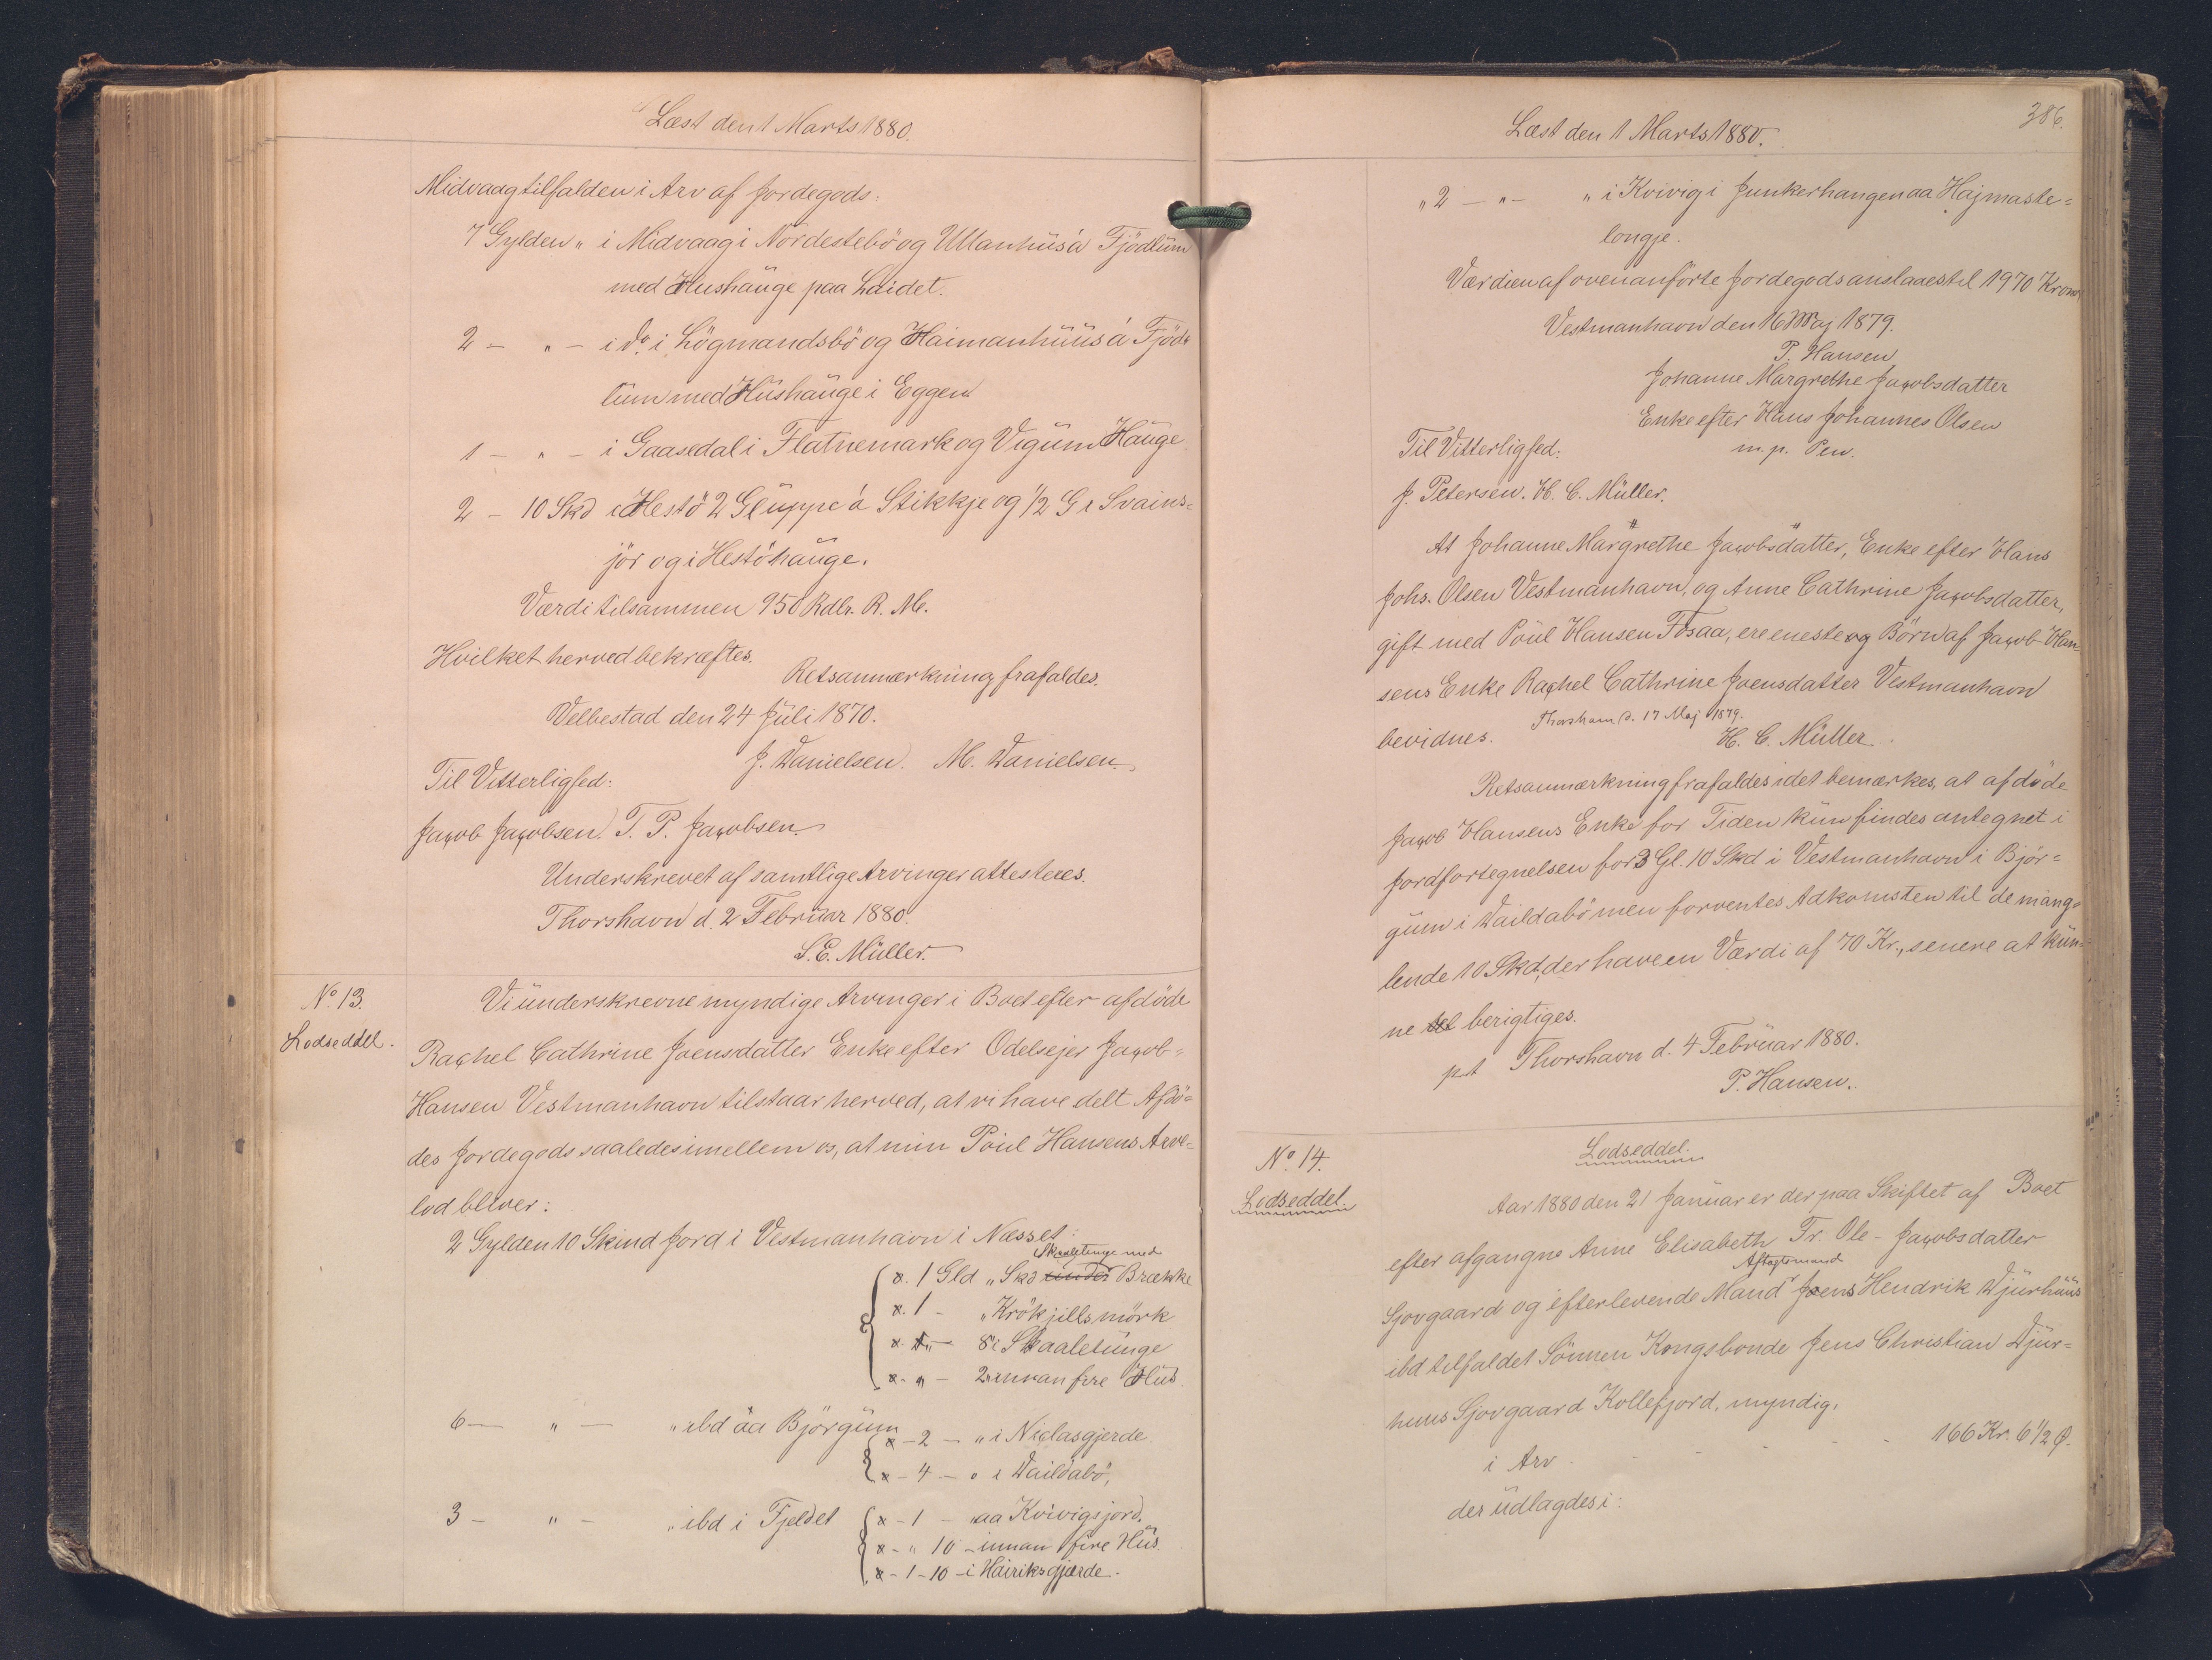 Læst den 1 Marts 1880.
Midvaag tilfalden i Arv af Jordegods:
7 Gylden " i Midvaag i Nordestebö og Uttanhüs á Fjödlüm
med Hushäuge paa Laidet.
2 - " - i do i Lögmandsbö og Haimanhüüs á Fjöd-
lüm med Hüshäuge i Eggen
1 - " - i Gaasedal i Flatnemark og Vigüm Häuge
2 - 10 Skd i Hestö 2 Glüppe á Stikkje og 1/2 G i Svains-
jör og i Hestöhäuge.
Værdi tilsammen 950 Rdlr. R. M.
Hvilket herved bekræftes.
Retsanmærkning frafaldes.
Velbestad den 24 Juli 1870.
J. Danielsen. M. Danielsen.
Til Vitterlighed:
Jacob Jacobsen. T. P. Jacobsen.
Underskrevet af samtlige Arvinger attesteres.
Thorshavn d. 2 Februar 1880.
S. E. Müller.
No 13.
Lodseddel.
Vi ünderskrevne myndige Arvinger i Boet efter afdöde
Rachel Cathrine Joensdatter Enke efter Odelsejer Jacob
Hansen Vestmanhavn tilstaar herved, at vi have delt Afdö-
des Jordegods saaledes imellem os, at min Poül Hansens Arve-
lod bliver:
2 Gylden 10 Skind Jord i Vestmanhavn i Næsset:
Skaaletunge med
x. 1 Gld " Skd Brække
x. 1 - " Krökjillsmörk
x. " - 8 i Skaaletünge
x - " - 2 innan fire Hüs.
6 - " - " ibd aa Björgüm
x - 2 - " i Niclasgjerde
x - 4 - " i Daildabö,
3 - " - " ibd i Fjeldet
x - 1 - " aa Kvivigsjord.
x - " 10 - innan fire Hüs.
x - 1 - 10 - i Hairiksgjærde.
386.
Læst den 1 Marts 1880.
" 2 - " - " i Kvivig i Junkerhangen aa Hajmaste-
longje.
Værdien af ovenanförte Jordegods anslaaes til 1970 Kroner
Vestmanhavn den 16 Maj 1879.
P. Hansen
Johanne Margrethe Jacobsdatter
Enke efter Hans Johannes Olsen
m. p. Pen.
Til Vitterlighed:
J. Petersen. H. C. Müller.
At Johanne Margrethe Jacobsdatter, Enke efter Hans
Johs. Olsen Vestmanhavn, og Anne Cathrine Jacobsdatter,
gift med Poül Hansen Fosaa, ere eneste og Börn af Jacob Han-
sens Enke Rachel Cathrine Joensdatter Vestmanhavn
bevidnes.
Thorshavn d. 17 Maj 1879.
H. C. Müller.
Retsanmærkning frafaldes idet bemærkes, at afdöde
Jacob Hansens Enke for Tiden kün findes antegnet i
Jordfortegnelsen for 3 Gl. 10 Skd i Vestmanhavn i Björ-
güm i Daildabö men forventes Adkomsten til de mang-
lende 10 Skd, der have en Værdi af 70 Kr., senere at kün-
ne berigtiges.
pt Thorshavn d. 4 Februar 1880.
P. Hansen.
No 14.
Lodseddel.
Lodseddel.
Aar 1880 den 21 Januar er der paa Skiftet af Boet
efter afgangne Anne Elisabeth Tr. Ole-Jacobsdatter
Aftægtsmand
Sjovgaard og efterlevende Mand Joens Hendrik Djürhüüs
ibd tilfaldet Sönnen Kongsbonde Jens Christian Djür-
huus Sjovgaard Kollefjord, myndig,
i Arv - - - - 166 Kr. 6 1/2 Ø.
der üdlagdes i: